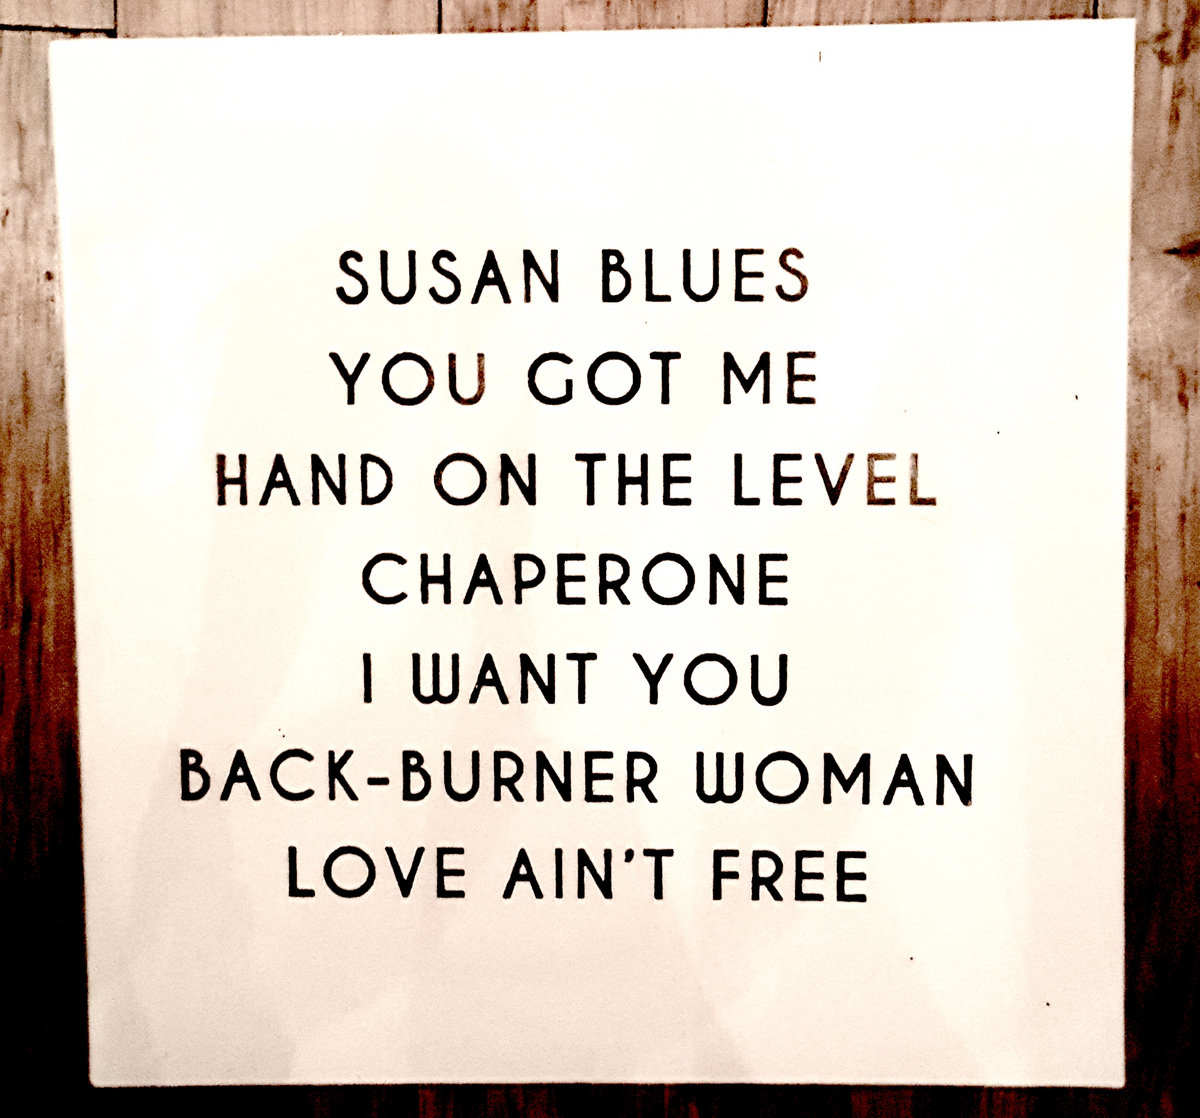 SUSAN BLUES
YOU GOT ME
HAND ON THE LEVEL
CHAPERONE
I WANT YOU
BACK-BURNER WOMAN
LOVE AIN'T FREE